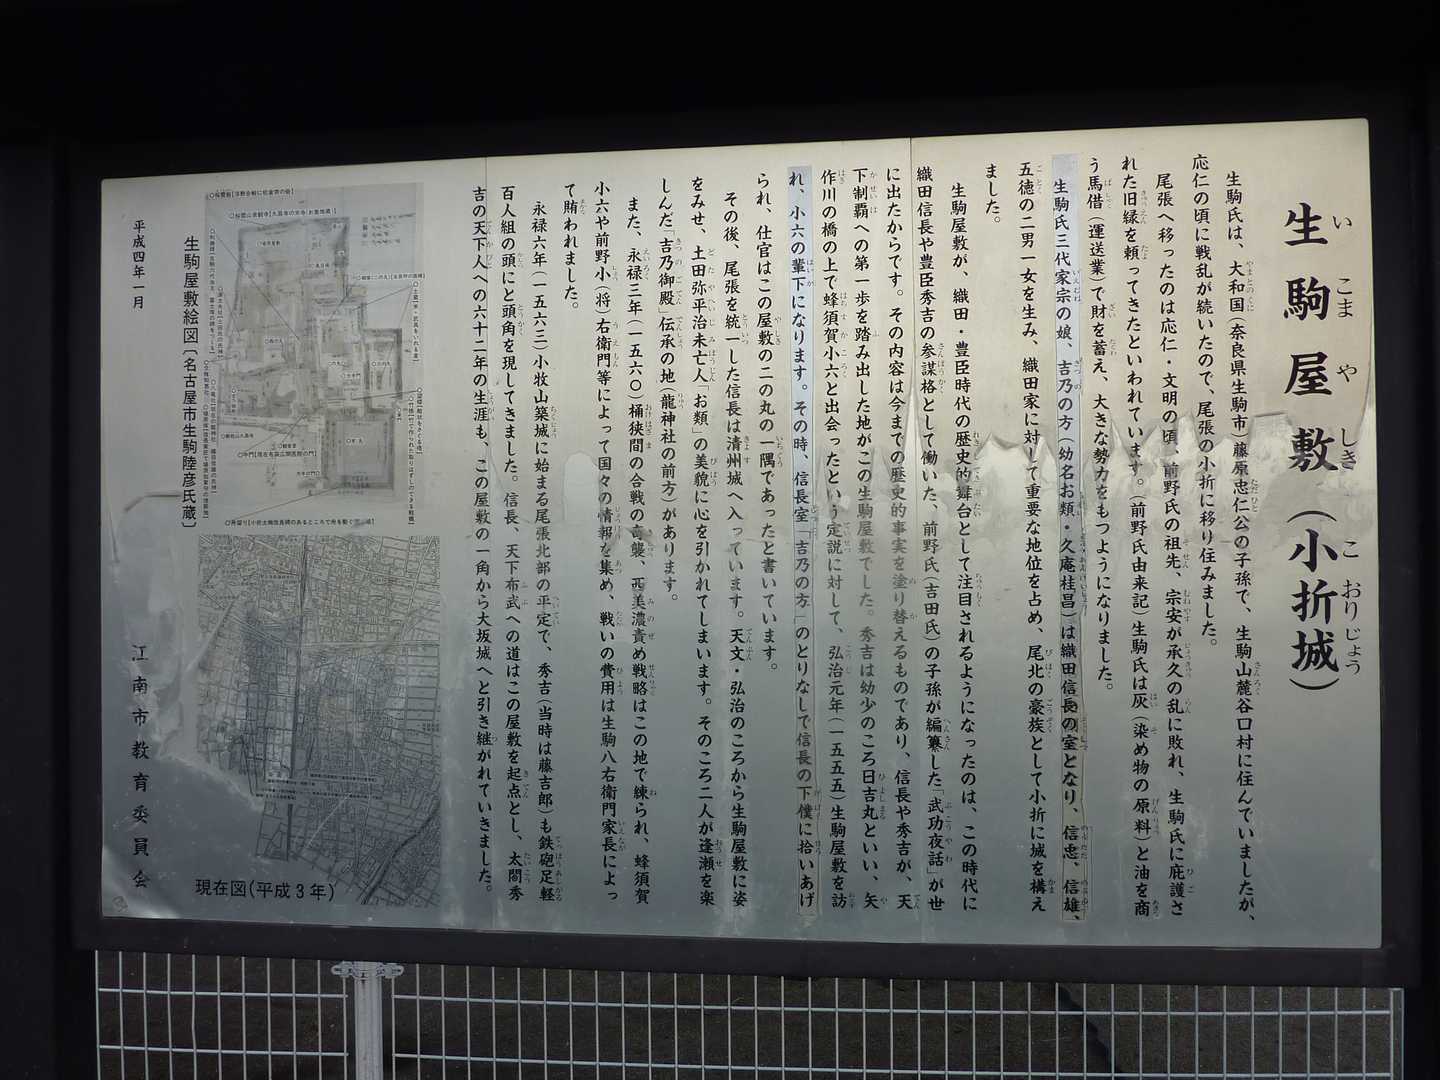 生駒屋敷（小折城）
い こま や しき こ おりじょう
生駒氏は、大和国（奈良県生駒市）藤原忠仁公の子孫で、生駒山麓谷口村に住んでいましたが、
応仁の頃に戦乱が続いたので、尾張の小折に移り住みました。
尾張へ移ったのは応仁・文明の頃、前野氏の祖先、宗安が承久の乱に敗れ、生駒氏に庇護さ
れた旧縁を頼ってきたといわれています。（前野氏由来記）生駒氏は灰（染め物の原料）と油を商
う馬借（運送業）で財を蓄え、大きな勢力をもつようになりました。
生駒氏三代家宗の娘、吉乃の方（幼名お類・久庵桂昌）は織田信長の室となり、信忠、信雄、
五徳の二男一女を生み、織田家に対して重要な地位を占め、尾北の豪族として小折に城を構え
ました。
生駒屋敷が、織田・豊臣時代の歴史的舞台として注目されるようになったのは、この時代に
織田信長や豊臣秀吉の参謀格として働いた、前野氏（吉田氏）の子孫が編纂した「武功夜話」が世
に出たからです。その内容は今までの歴史的事実を塗り替えるものであり、信長や秀吉が、天
下制覇への第一歩を踏み出した地がこの生駒屋敷でした。秀吉は幼少のころ日吉丸といい、矢
作川の橋の上で蜂須賀小六と出会ったという定説に対して、弘治元年（一五五五）生駒屋敷を訪
れ、小六の輩下になります。その時、信長室「吉乃の方」のとりなしで信長の下僕に拾いあげ
られ、仕官はこの屋敷の二の丸の一隅であったと書いています。
その後、尾張を統一した信長は清州城へ入っています。天文・弘治のころから生駒屋敷に姿
をみせ、土田弥平治未亡人「お類」の美貌に心を引かれてしまいます。そのころ二人が逢瀬を楽
しんだ「吉乃御殿」伝承の地（龍神社の前方）があります。
また、永禄三年（一五六〇）桶狭間の合戦の奇襲、西美濃責め戦略はこの地で練られ、蜂須賀
小六や前野小（将）右衛門等によって国々の情報を集め、戦いの費用は生駒八右衛門家長によっ
て賄われました。
永禄六年（一五六三）小牧山築城に始まる尾張北部の平定で、秀吉（当時は藤吉郎）も鉄砲足軽
百人組の頭にと頭角を現してきました。信長、天下布武への道はこの屋敷を起点とし、太閤秀
吉の天下人への六十二年の生涯も、この屋敷の一角から大坂城へと引き継がれていきました。
生駒屋敷絵図〔名古屋市生駒陸彦氏蔵〕
現在図（平成3年）
平成四年一月
江南市教育委員会